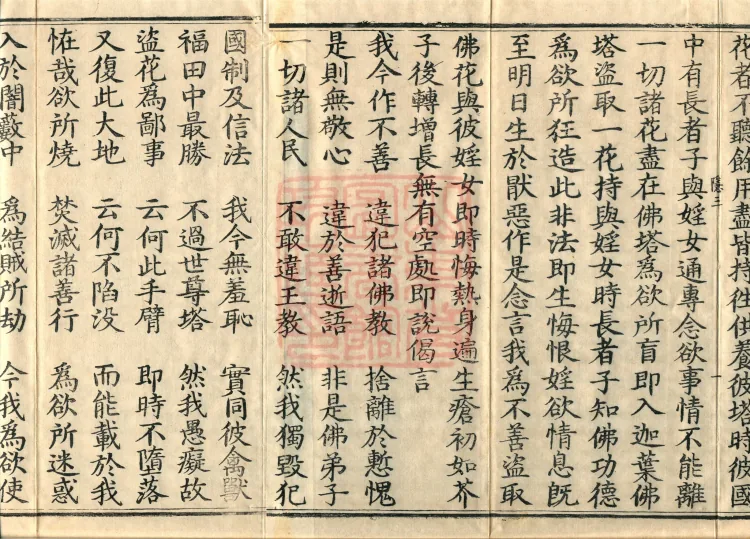 花者不聽餘用盡皆持徃供養彼塔時彼國
中有長者子與婬女通專念欲事情不能離
一切諸花盡在佛塔爲欲所盲即入迦葉佛
塔盜取一花持與婬女時長者子知佛功德
爲欲所狂造此非法即生悔恨婬欲情息旣
至明日生於猒惡作是念言我爲不善盜取
佛花與彼婬女即時悔熱身遍生瘡初如芥
子後轉增長無有空處即說偈言
我今作不善 違犯諸佛教 捨離於慙愧
是則無敬心 違於善逝語 非是佛弟子
一切諸人民 不敢違王教 然我獨毀犯
國制及信法 我今無羞恥 實同彼禽獸
福田中最勝 不過世尊塔 然我愚癡故
盜花爲鄙事 云何此手臂 即時不墮落
又復此大地 云何不陷没 而能載於我
恠哉欲所燒 焚滅諸善行 爲欲所迷惑
入於闇藪中 爲結賊所劫 今我爲欲使